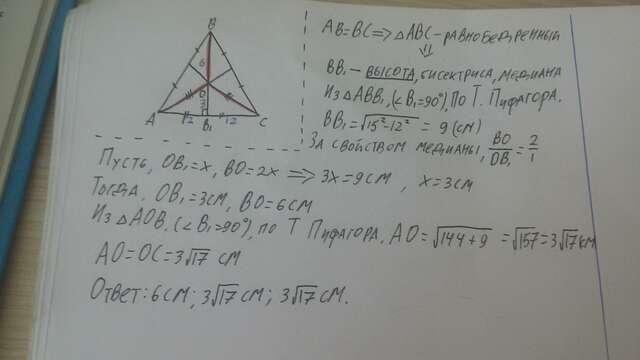 B
6
O
3
A
12
B₁
12
C
AB=BC=>△ABC-равнобедренный
⇓
BB₁-высота, бисектриса, медиана
Из △ABB₁, (<B₁=90°), по Т. Пифагора.
BB₁=√15²-12² = 9 (см)
За свойством медианы, BO/OB₁=2/1
Пусть, OB₁=x, BO=2x => 3x=9см, x=3см
Тогда, OB₁=3см, BO=6см
Из △AOB₁ (<B₁=90°), по Т Пифагора, AO=√144+9 =√157=3√17см
AO=OC=3√17 см
Ответ: 6см; 3√17см; 3√17см.